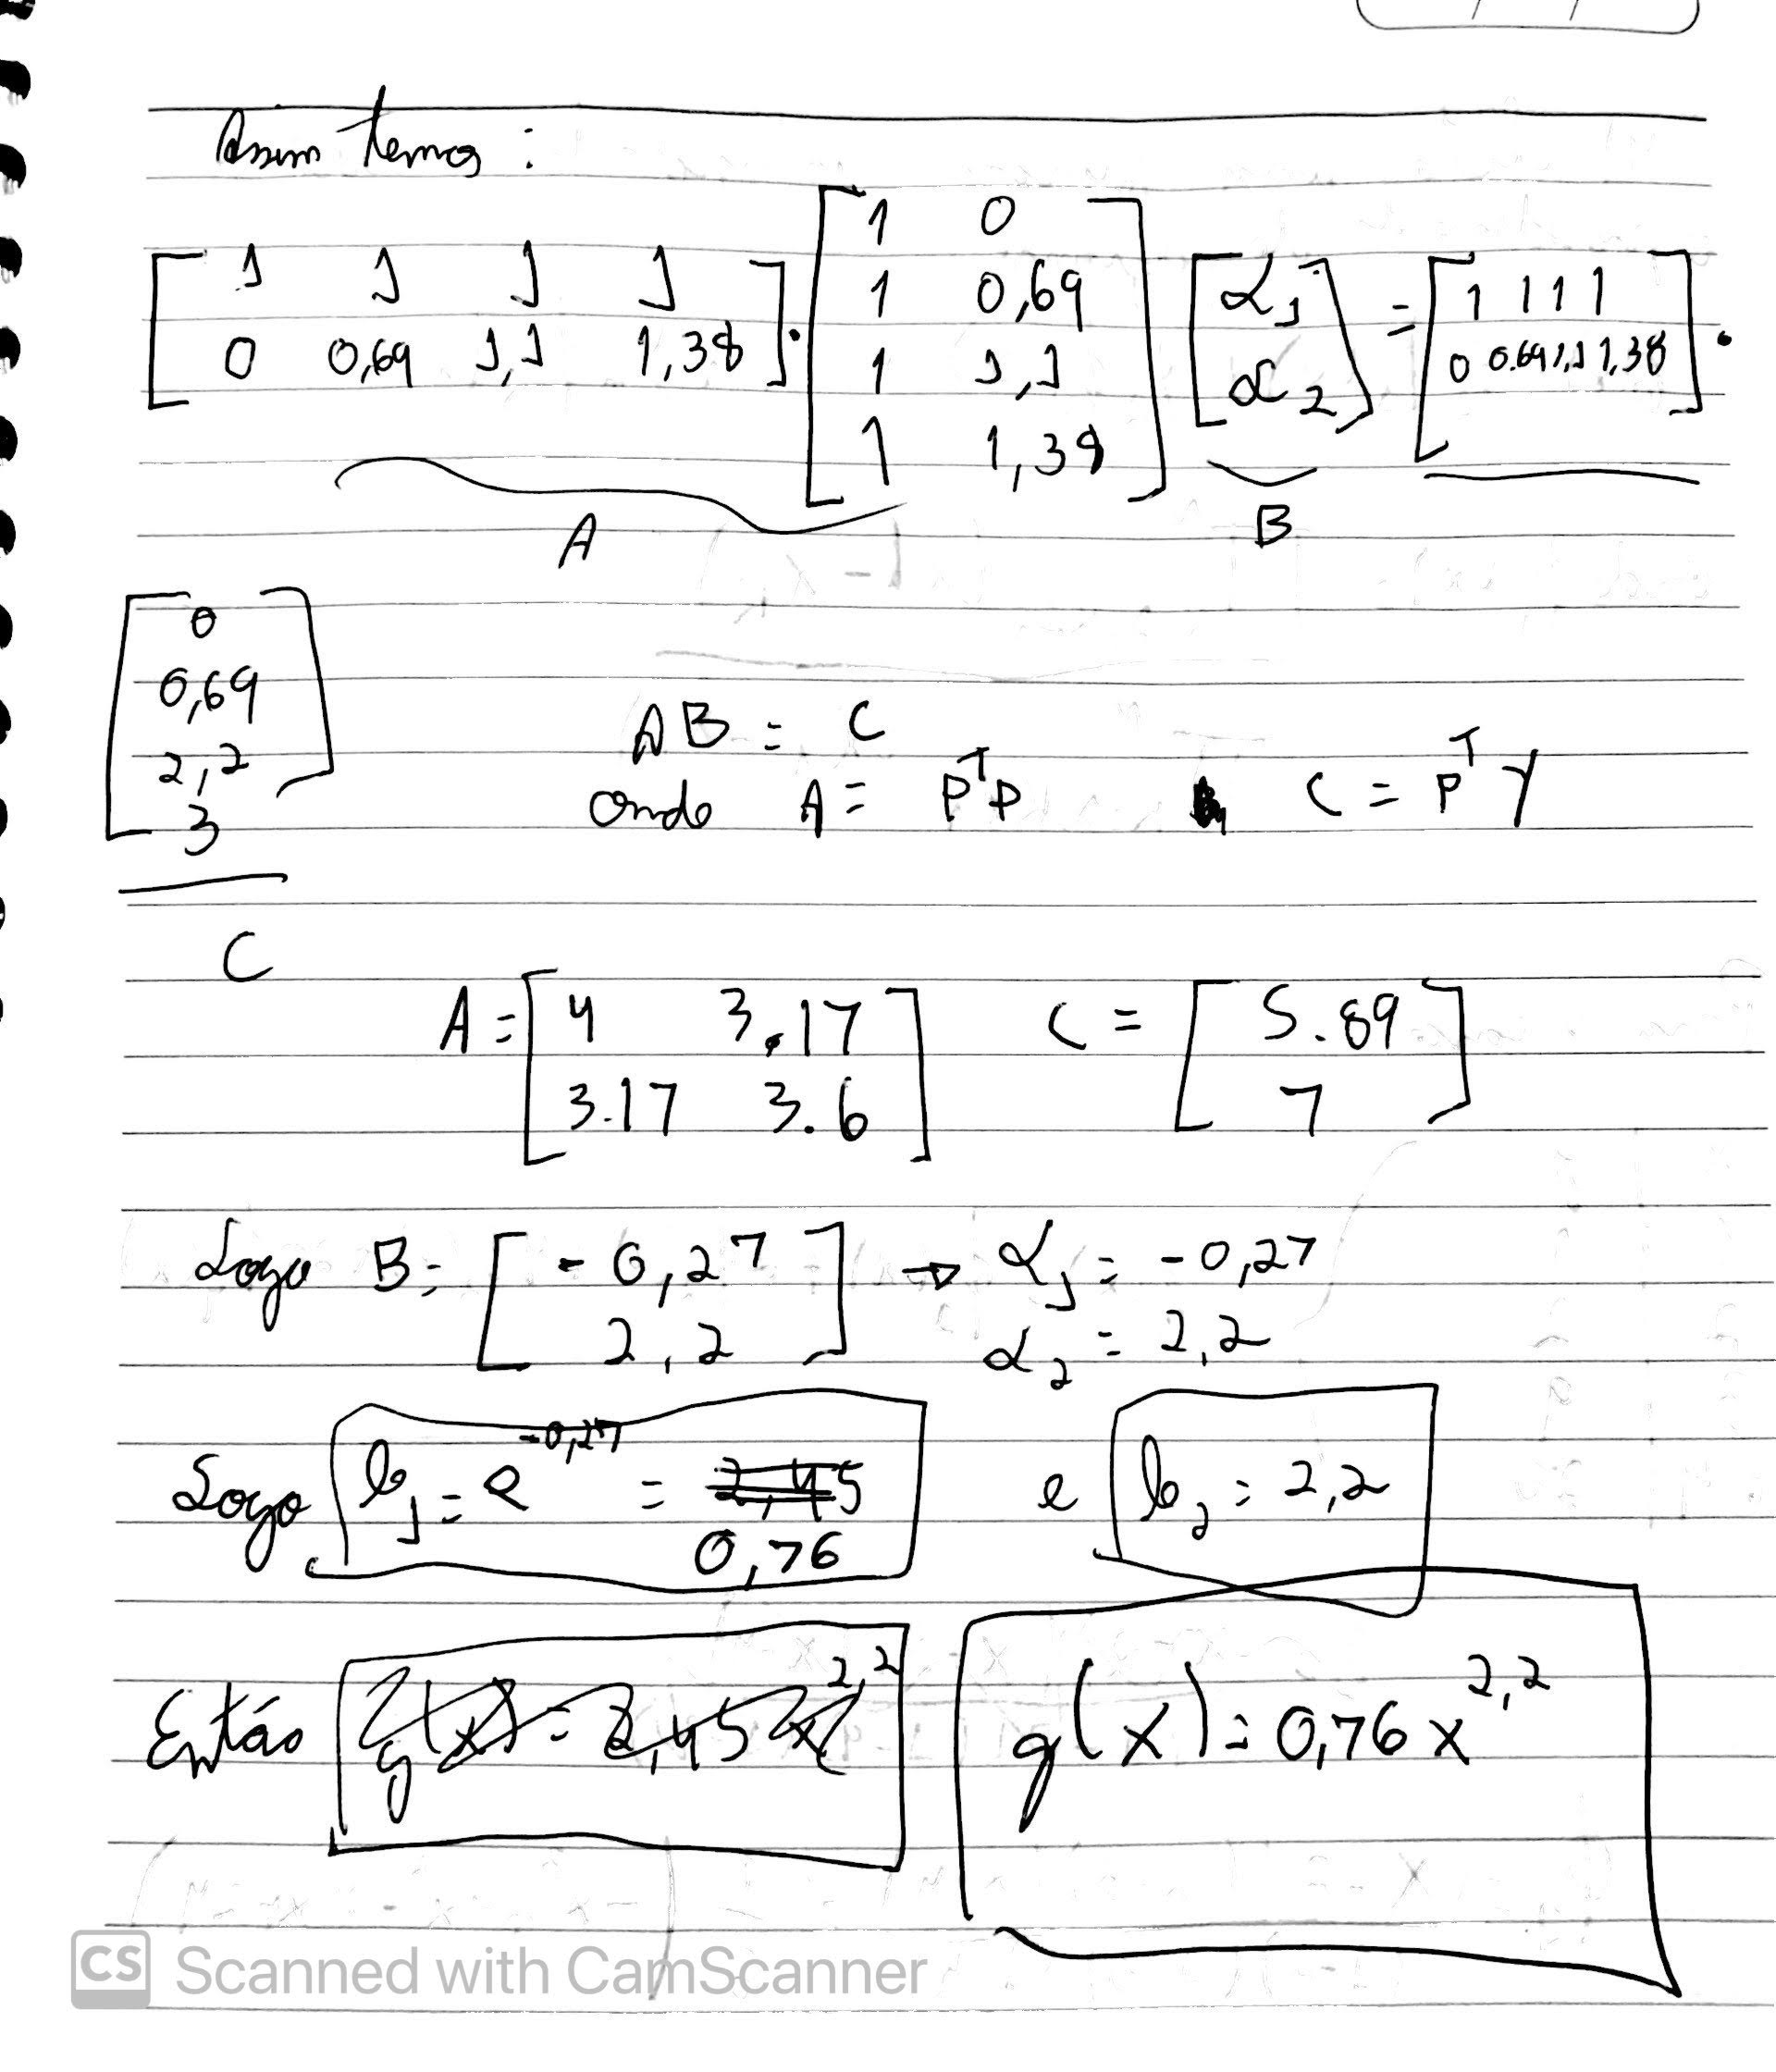 Assim temos :
[ 1 1 1 1 ; 0 0,69 1,1 1,38 ] . [ 1 0 ; 1 0,69 ; 1 1,1 ; 1 1,38 ] [ α1 ; α2 ] = [ 1 1 1 1 ; 0 0.69 1,1 1,38 ] .
A B
[ 0 ; 0,69 ; 2,2 ; 3 ]
C
AB = C
onde A = P^T P C = P^T Y
A = [ 4 3.17 ; 3.17 3.6 ] C = [ 5.89 ; 7 ]
Logo B = [ -0,27 ; 2,2 ] → α1 = -0,27
α2 = 2,2
Logo b1 = e^-0,27 = 2,45 e b2 = 2,2
0,76
Então g(x) = 2,45 x^2,2 g(x) = 0,76 x^2,2
CS Scanned with CamScanner